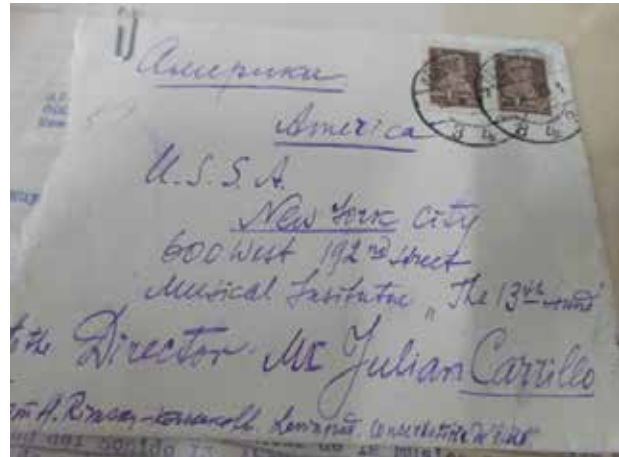 Америка
America
U.S.S.A.
New York City
600 West 192nd street
Musical Institute „The 13th sound"
to the Director Mr Julian Carrillo
A. Rimsky-Korsakoff. Conservatoire
del Sonido 13